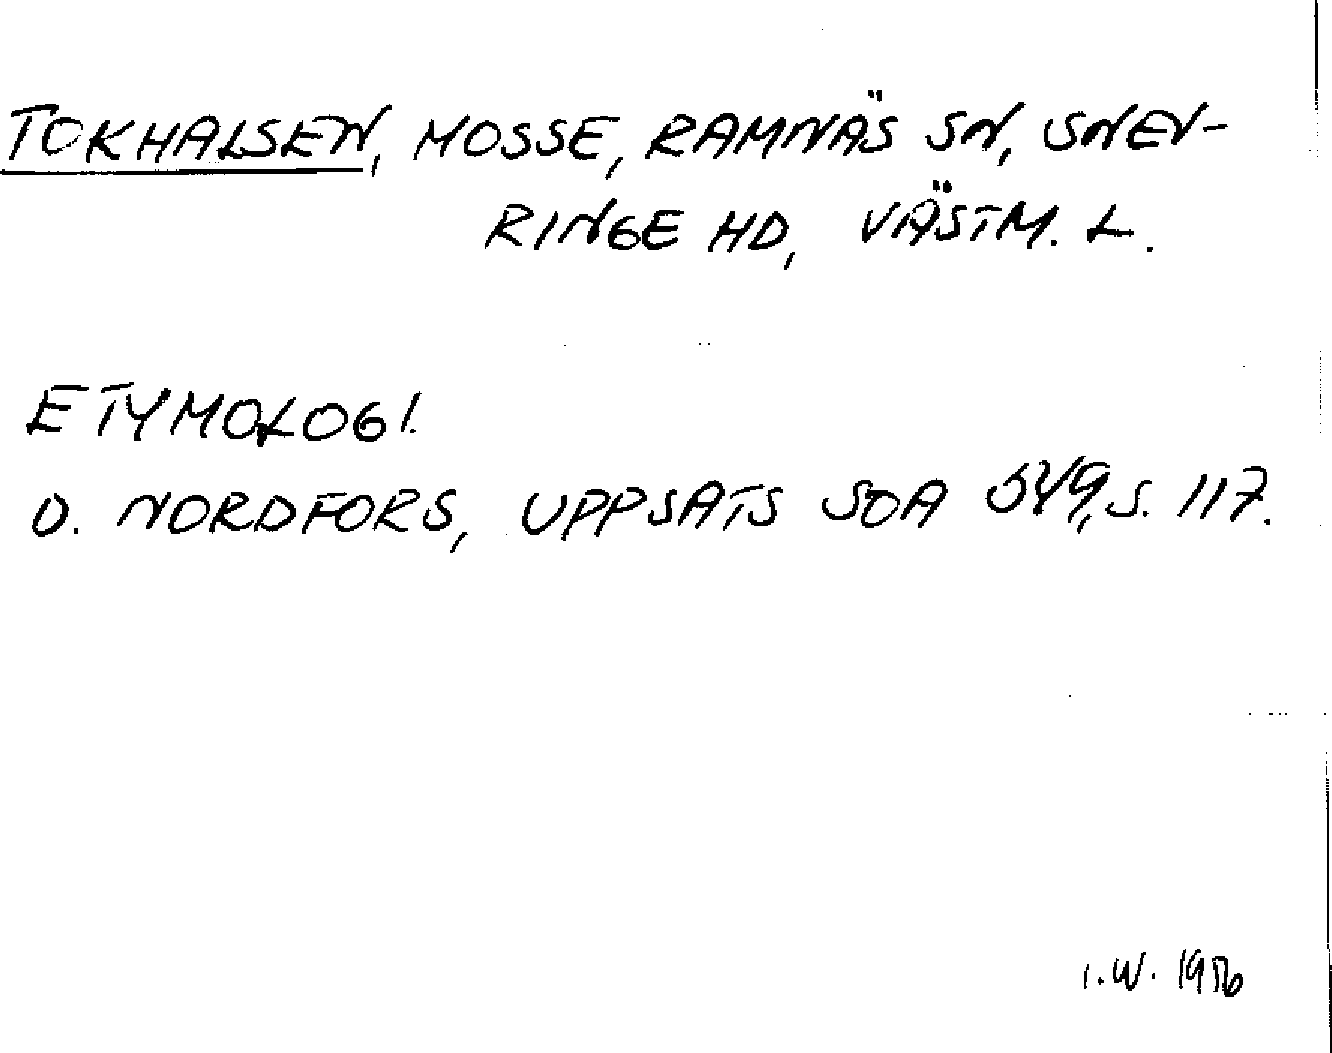 TOKHALSEN, MOSSE, RAMNÄS SN, SNEV-
RINGE HD, VÄSTM. L.
ETYMOLOGI.
O. NORDFORS, UPPSATS SOA 549, S. 117.
I.W.